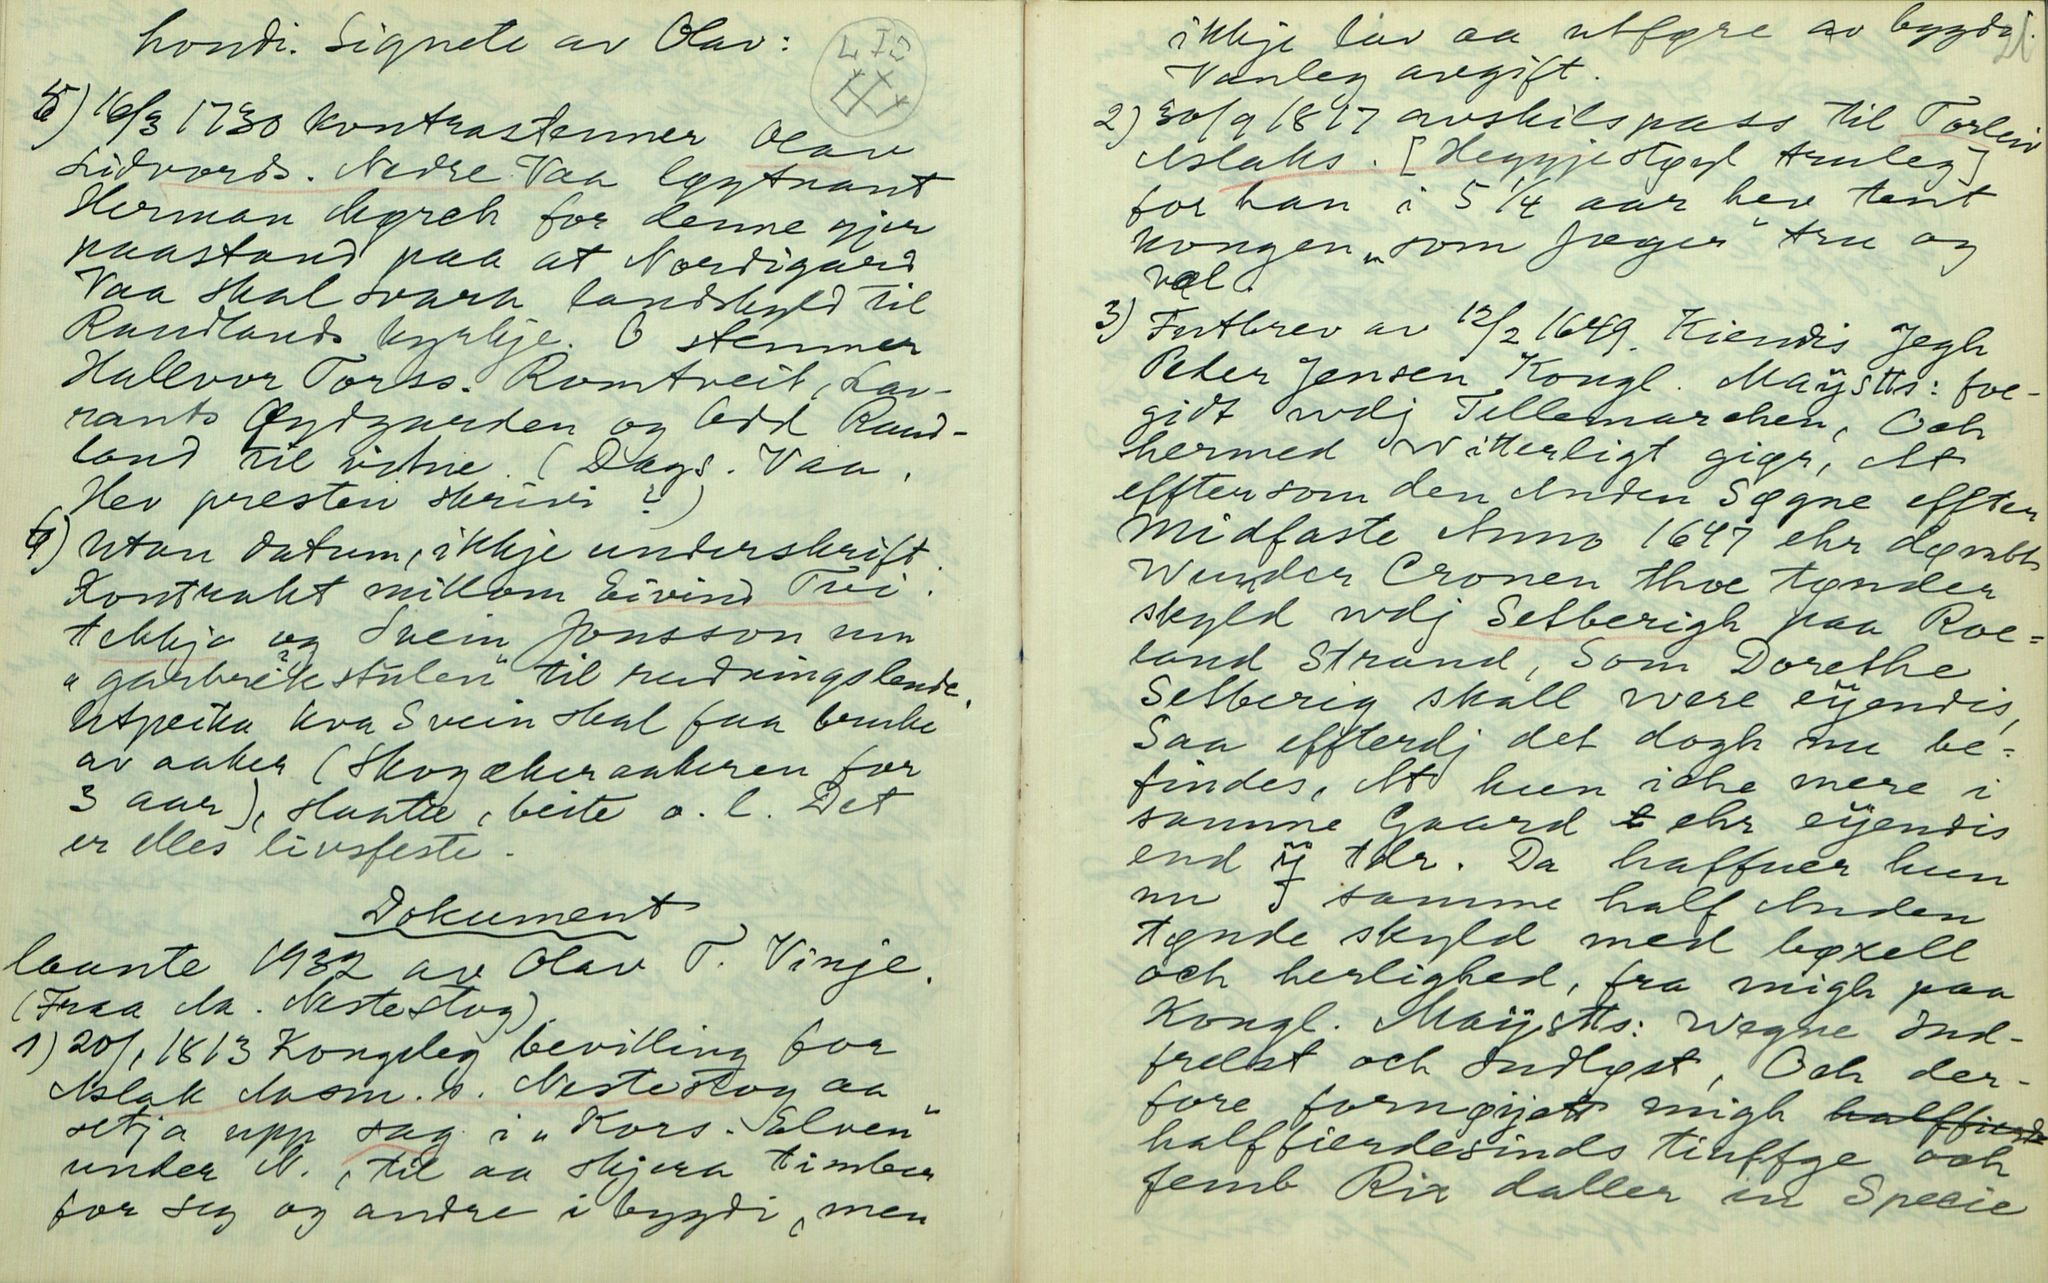 hondi. Signete av Olav: LIS
5) 16/3 1730 kontrastemner Olav
Sidvords. Nedre Vaa løytnant
Herman Mørch for denne gjer
paastand paa at Nordigard
Vaa skal svara landskyld til
Raudlands kyrkje. O stemner
Hallvor Torss. Romtveit, Lav-
rants Øydgarden og Odd Raud-
land til vitne. (Dags. Vaa,
Hev presten skrivi?)
6) Utan datum, ikkje underskrift.
Kontrakt millom Eivind Tvi-
tekkja og Svein Jonsson um
"garbrekkstulen" til rudningslende.
Utpeika kva Svein skal faa bruke
av aaker (Skogækeraakeren for
3 aar), slaatte, beite o. l. Det
er elles livsfeste.
Dokument
laante 1932 av Olav T. Vinje.
(Fraa Aa. Nestestog).
1) 20/1 1813 Kongeleg bevilling for
Aslak Aasm. s. Nestestog aa
setja upp sag i "Kors-Elven"
under N., til aa skjera timber
for seg og andre i bygdi, men
ikkje lov aa utføre av bygdi.
Vanleg avgift.
2) 30/9 1817 avskilspass til Torleiv
Aslaks. [Heggjestøyl truleg]
for han i 5 1/4 aar hev tent
kongen "som Jæger" tru og
vel.
3) Futbrev av 12/2 1649. Kiendis Jegh
Peder Jensen Kongl. Maÿstts: foe-
gidt wdj Tellemarchen, Och
hermed Witterligt giør, At
efftersom den Anden Søgne effter
Midfaste Anno 1647 ehr dømbt
Wunder Cronen thoe tønder
skyld wdj Selberigh paa Roe=
land Strand, Som Dorethe
Selberig skall were eÿendis,
Saa effterdj det dogh nu be=
findes, At hun iche mere i
samme Gaard ehr eÿendis
end ij tdr. Da haffuer hun
nu J samme half Anden
tønde skyld med bøxell
och herlighed, fra migh paa
Kongl. Maÿstts: Wegne Ind-
frelst och Indløst, Och der-
fore fornøÿett migh halffierde
halffierdesinds tiuffge och
femb Rix daller in Specie